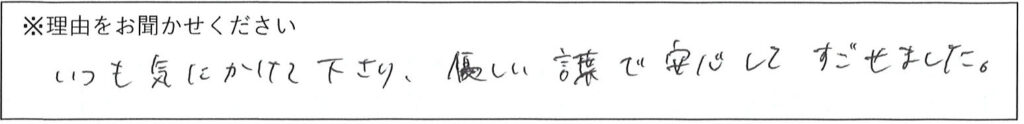 ※理由をお聞かせください
いつも気にかけて下さり、優しい言葉で安心してすごせました。